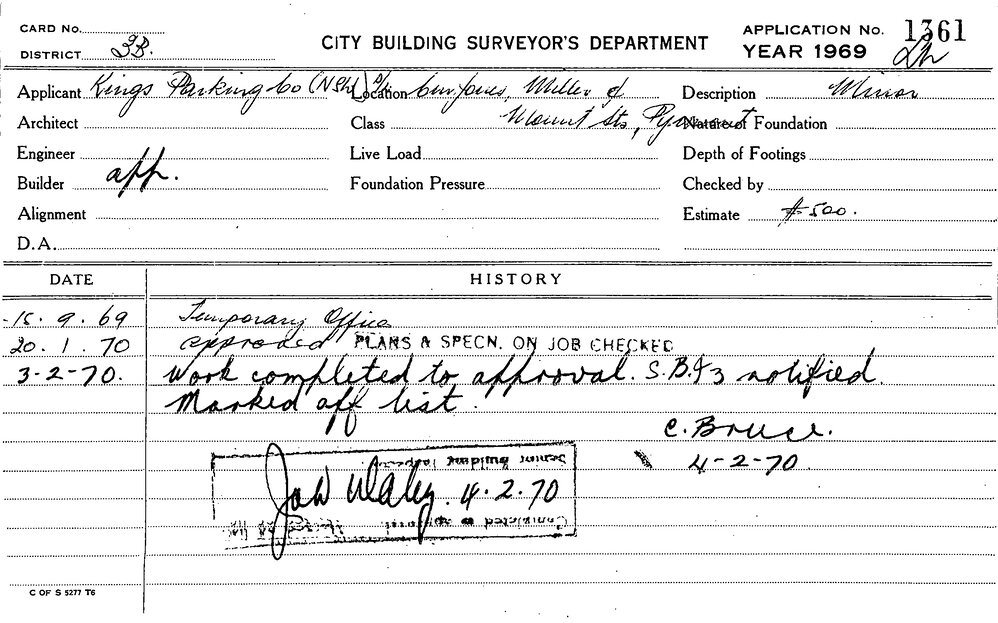 CARD No.
APPLICATION No. 1361
DISTRICT 3B.
CITY BUILDING SURVEYOR'S DEPARTMENT
YEAR 1969
Applicant Kings Parking Co (NSW) P/L
Location Cnr Jones, Miller &
Description Minor
Architect
Class Mount Sts, Pyrmont
Nature of Foundation
Engineer
Live Load
Depth of Footings
Builder app.
Foundation Pressure
Checked by
Alignment
Estimate $500.
D.A.
DATE HISTORY
15. 9. 69 Temporary Office
20. 1. 70 approved PLANS & SPECN. ON JOB CHECKED
3-2-70. Work completed to approval. S.B.I 3 notified.
Marked off list.
C. Bruce.
4-2-70.
Senior Building Inspector
4.2.70
Completed to approval
C OF S 5277 T6